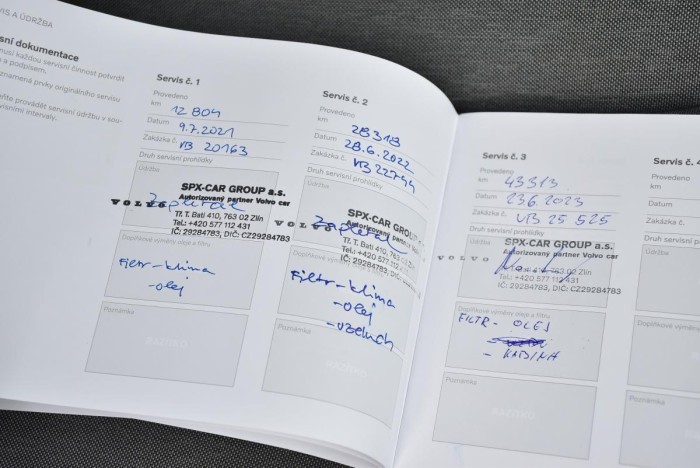 VIS A ÚDRŽBA
sní dokumentace
musí každou servisní činnost potvrdit
m a podpisem.
znamená prvky originálního servisu
ňte provádět servisní údržbu v sou-
visními intervaly.
Servis č. 1
Provedeno
km 12 804
Datum 9.7.2021
Zakázka č. VB 20163
Druh servisní prohlídky
Údržba
SPX-CAR GROUP a.s.
Autorizovaný partner Volvo car
VOLVO
Tř. T. Bati 410, 763 02 Zlín
Tel.: +420 577 112 431
IČ: 29284783, DIČ: CZ29284783
Doplňkové výměny oleje a filtru
Filtr-klima
-olej
Poznámka
RAZÍTKO
Servis č. 2
Provedeno
km 28318
Datum 28.6.2022
Zakázka č. VB 22744
Druh servisní prohlídky
Údržba
SPX-CAR GROUP a.s.
Autorizovaný partner Volvo car
VOLVO
Tř. T. Bati 410, 763 02 Zlín
Tel.: +420 577 112
IČ: 29284783, DIČ: CZ
Doplňkové výměny oleje a filtru
Filtr-klima
-olej
-vzduch
Poznámka
RAZÍTKO
Servis č. 3
Provedeno
km 43313
Datum 23.6.2023
Zakázka č. VB 25 525
Druh servisní prohlídky
Údržba
SPX-CAR GROUP a.s.
Autorizovaný partner Volvo car
VOLVO
Tř. T. Bati 410, 763 02 Zlín
Tel.: +420 577 112 431
IČ: 29284783, DIČ: CZ29284783
Doplňkové výměny oleje a filtru
FILTR - OLEJ
- KABINA
Poznámka
RAZÍTKO
Servis č. 4
Provedeno
km
Datum
Zakázka č.
Druh servisní
Údržba
Doplňkové výměny
Poznámka